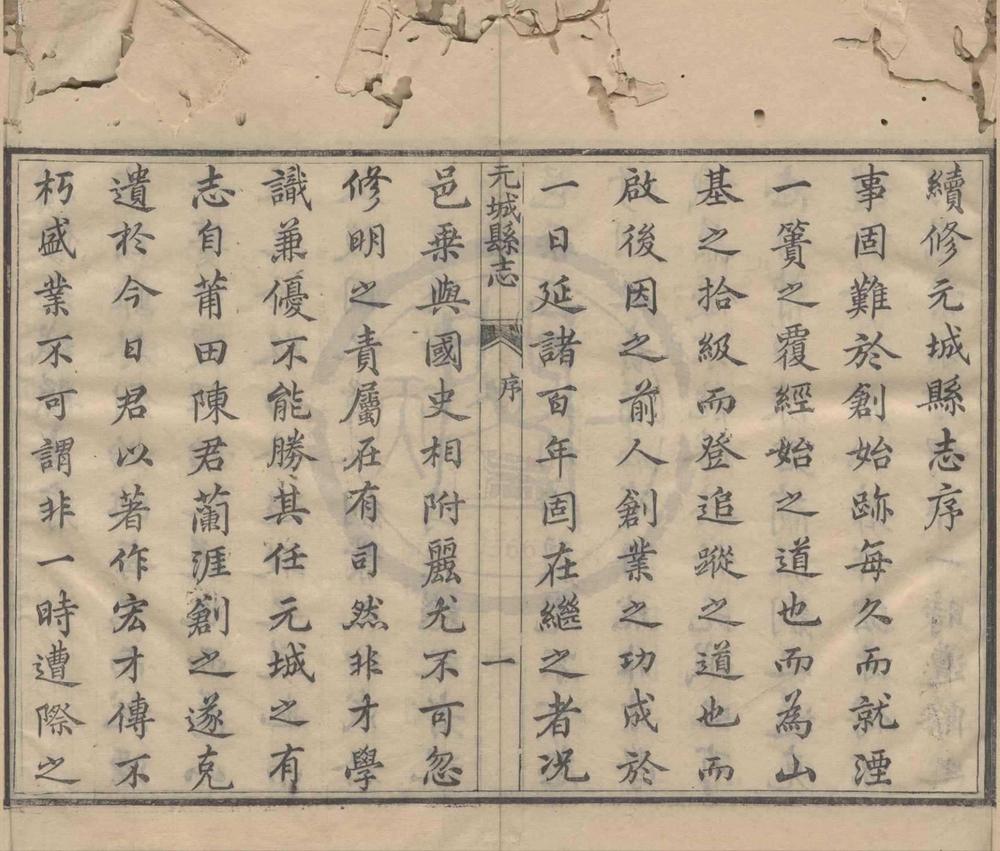 續修元城縣志序
事固難於創始跡每久而就湮
一簣之覆經始之道也而為山
基之拾級而登追蹤之道也而
啟後因之前人創業之功成於
一日延諸百年固在繼之者況
元城縣志 序 一
邑乗與國史相附麗尤不可忽
修明之責屬在有司然非才學
識兼優不能勝其任元城之有
志自莆田陳君蘭涯創之遂克
遺於今日君以著作宏才傳不
朽盛業不可謂非一時遭際之